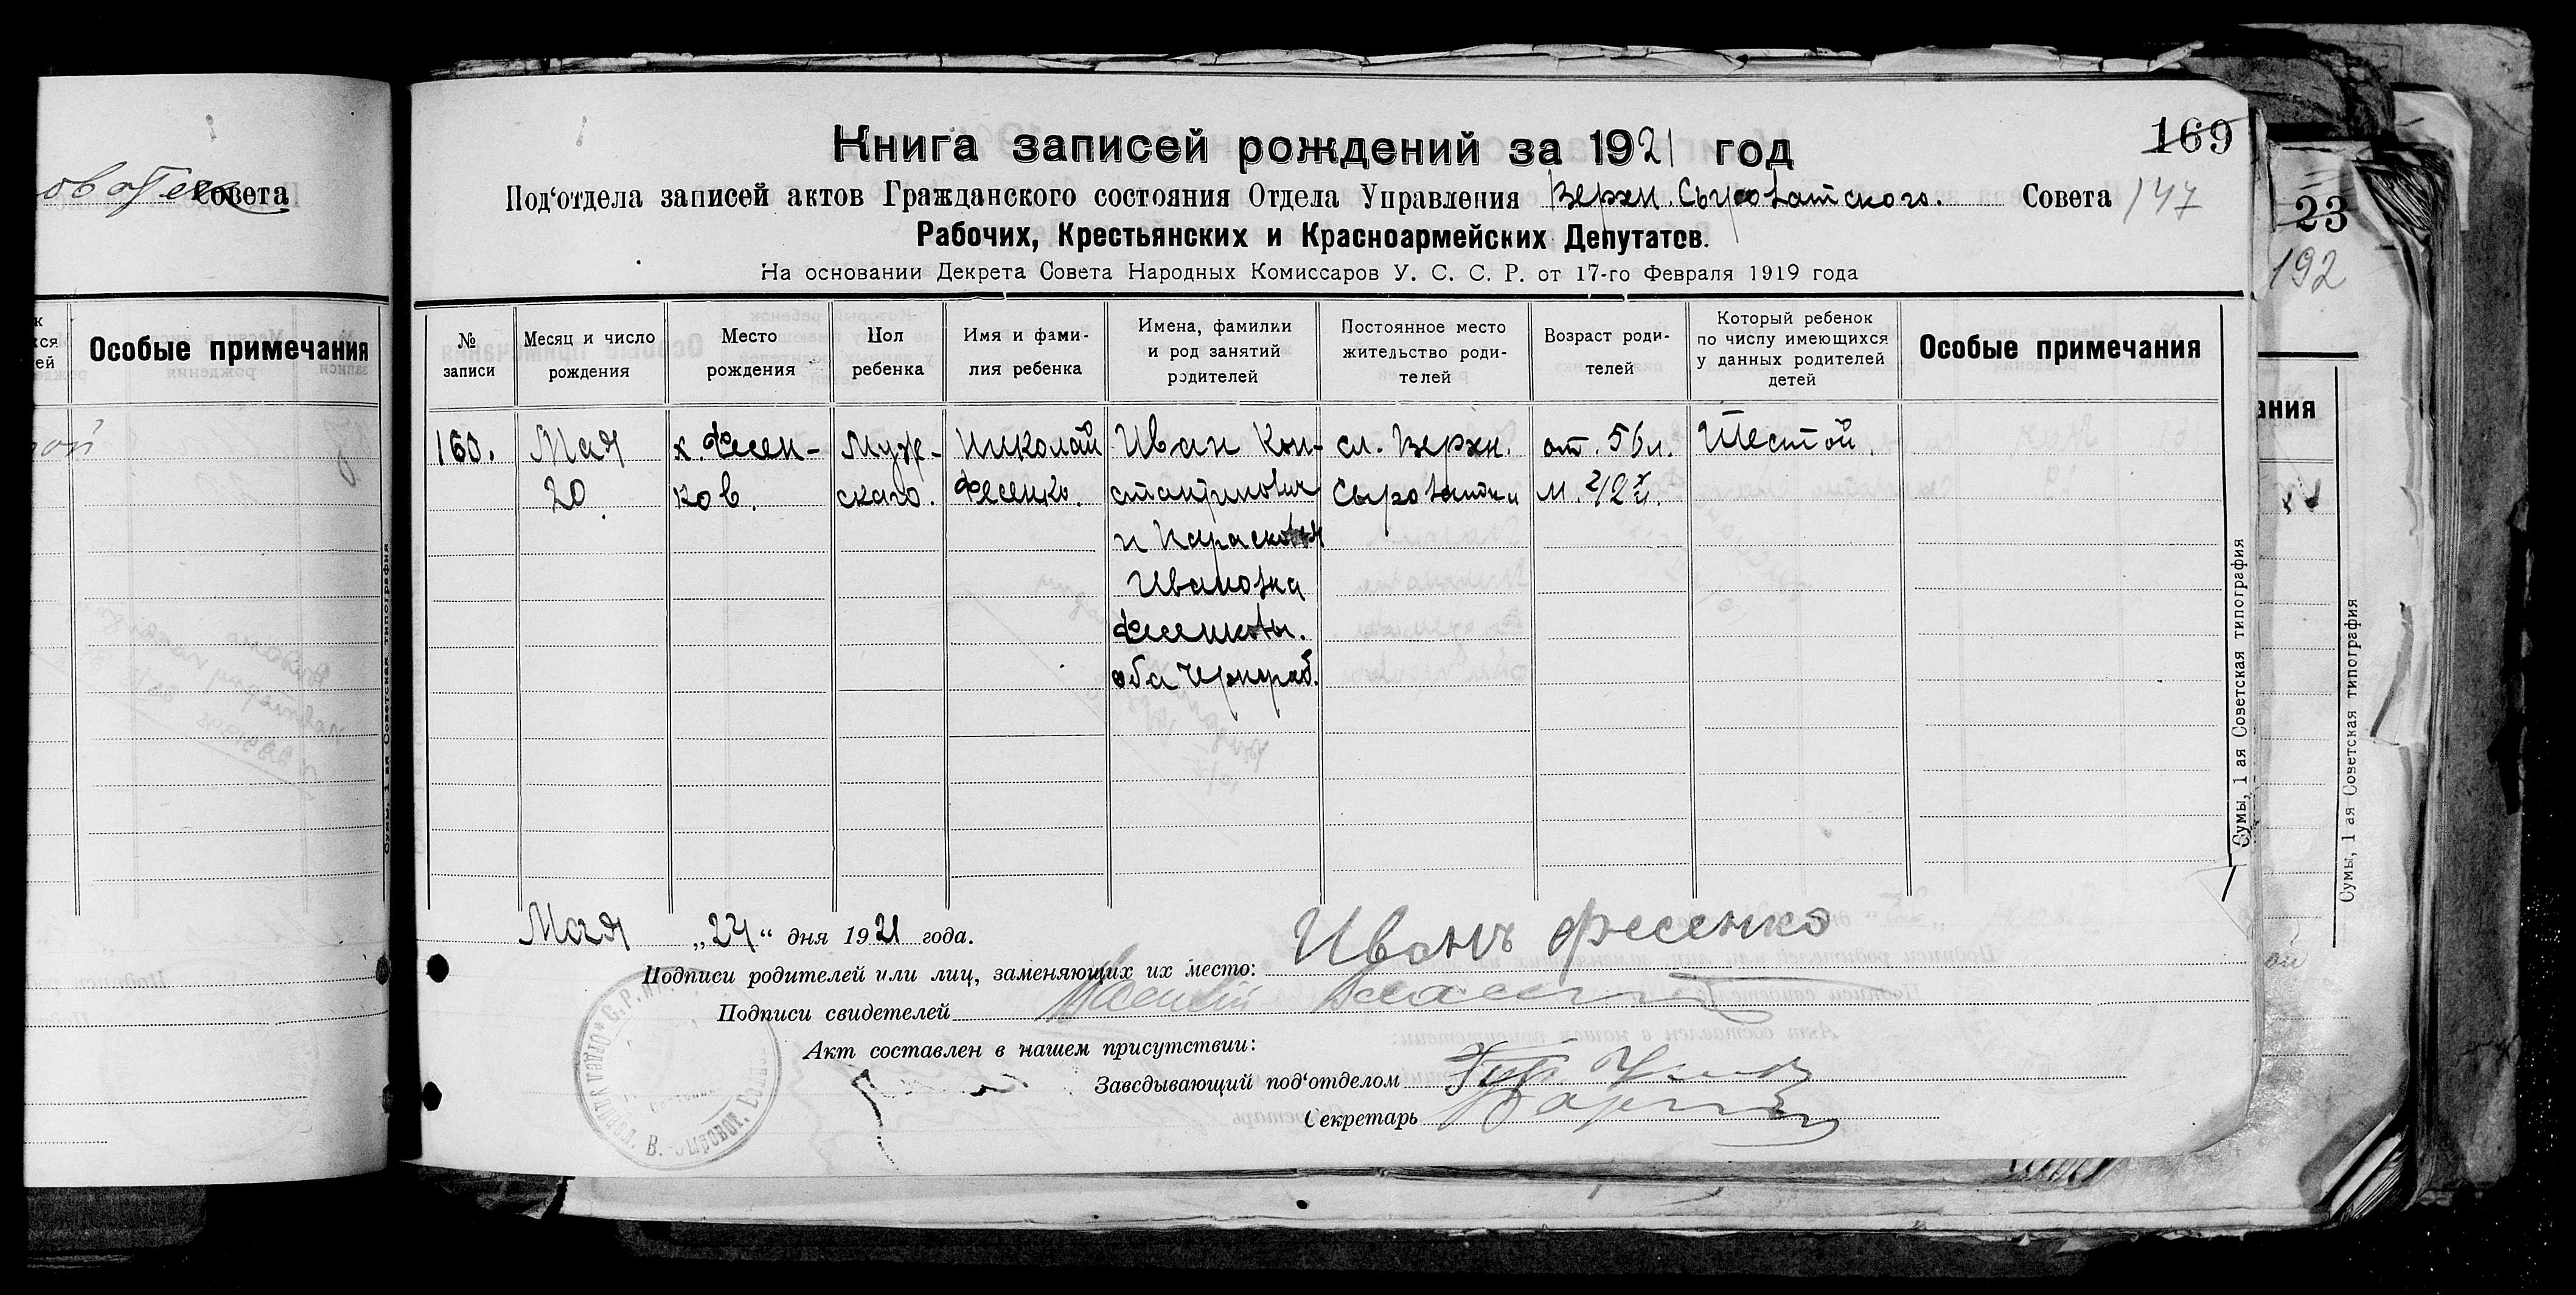 Совета
Особые примечания
169
Книга записей рождений за 1921 год
Под‘отдела записей актов Гражданского состояния Отдела Управления Верхн. Сыроватского. Совета 147
Рабочих, Крестьянских и Красноармейских Депутатов.
На основании Декрета Совета Народных Комиссаров У. С. С. Р. от 17-го Февраля 1919 года
№ записи
Месяц и число рождения
Место рождения
Пол ребенка
Имя и фами-
лия ребенка
Имена, фамилии
и род занятий
родителей
Постоянное место
жительство роди-
телей
Возраст роди-
телей
Который ребенок
по числу имеющихся
у данных родителей
детей
Особые примечания
160.
Мая
20.
х. Фесен-
ков.
Муж-
скаго.
Николай
Фесенко.
Иван Кон-
стантинович
и Парасковья
Ивановна
Фесенковы.
оба Чернораб.
сл. Верхн.
Сыроватки
от. 56 л.
м. 42 л.
Шестой.
Мая „24“ дня 1921 года.
Подписи родителей или лиц, заменяющих их место: Иванъ Фесенко
Подписи свидетелей
Акт составлен в нашем присутствии:
Заведывающий под‘отделом
Секретарь
Сумы, 1 ая Советская типография
23
192
ания
Сумы, 1 ая Советская типография